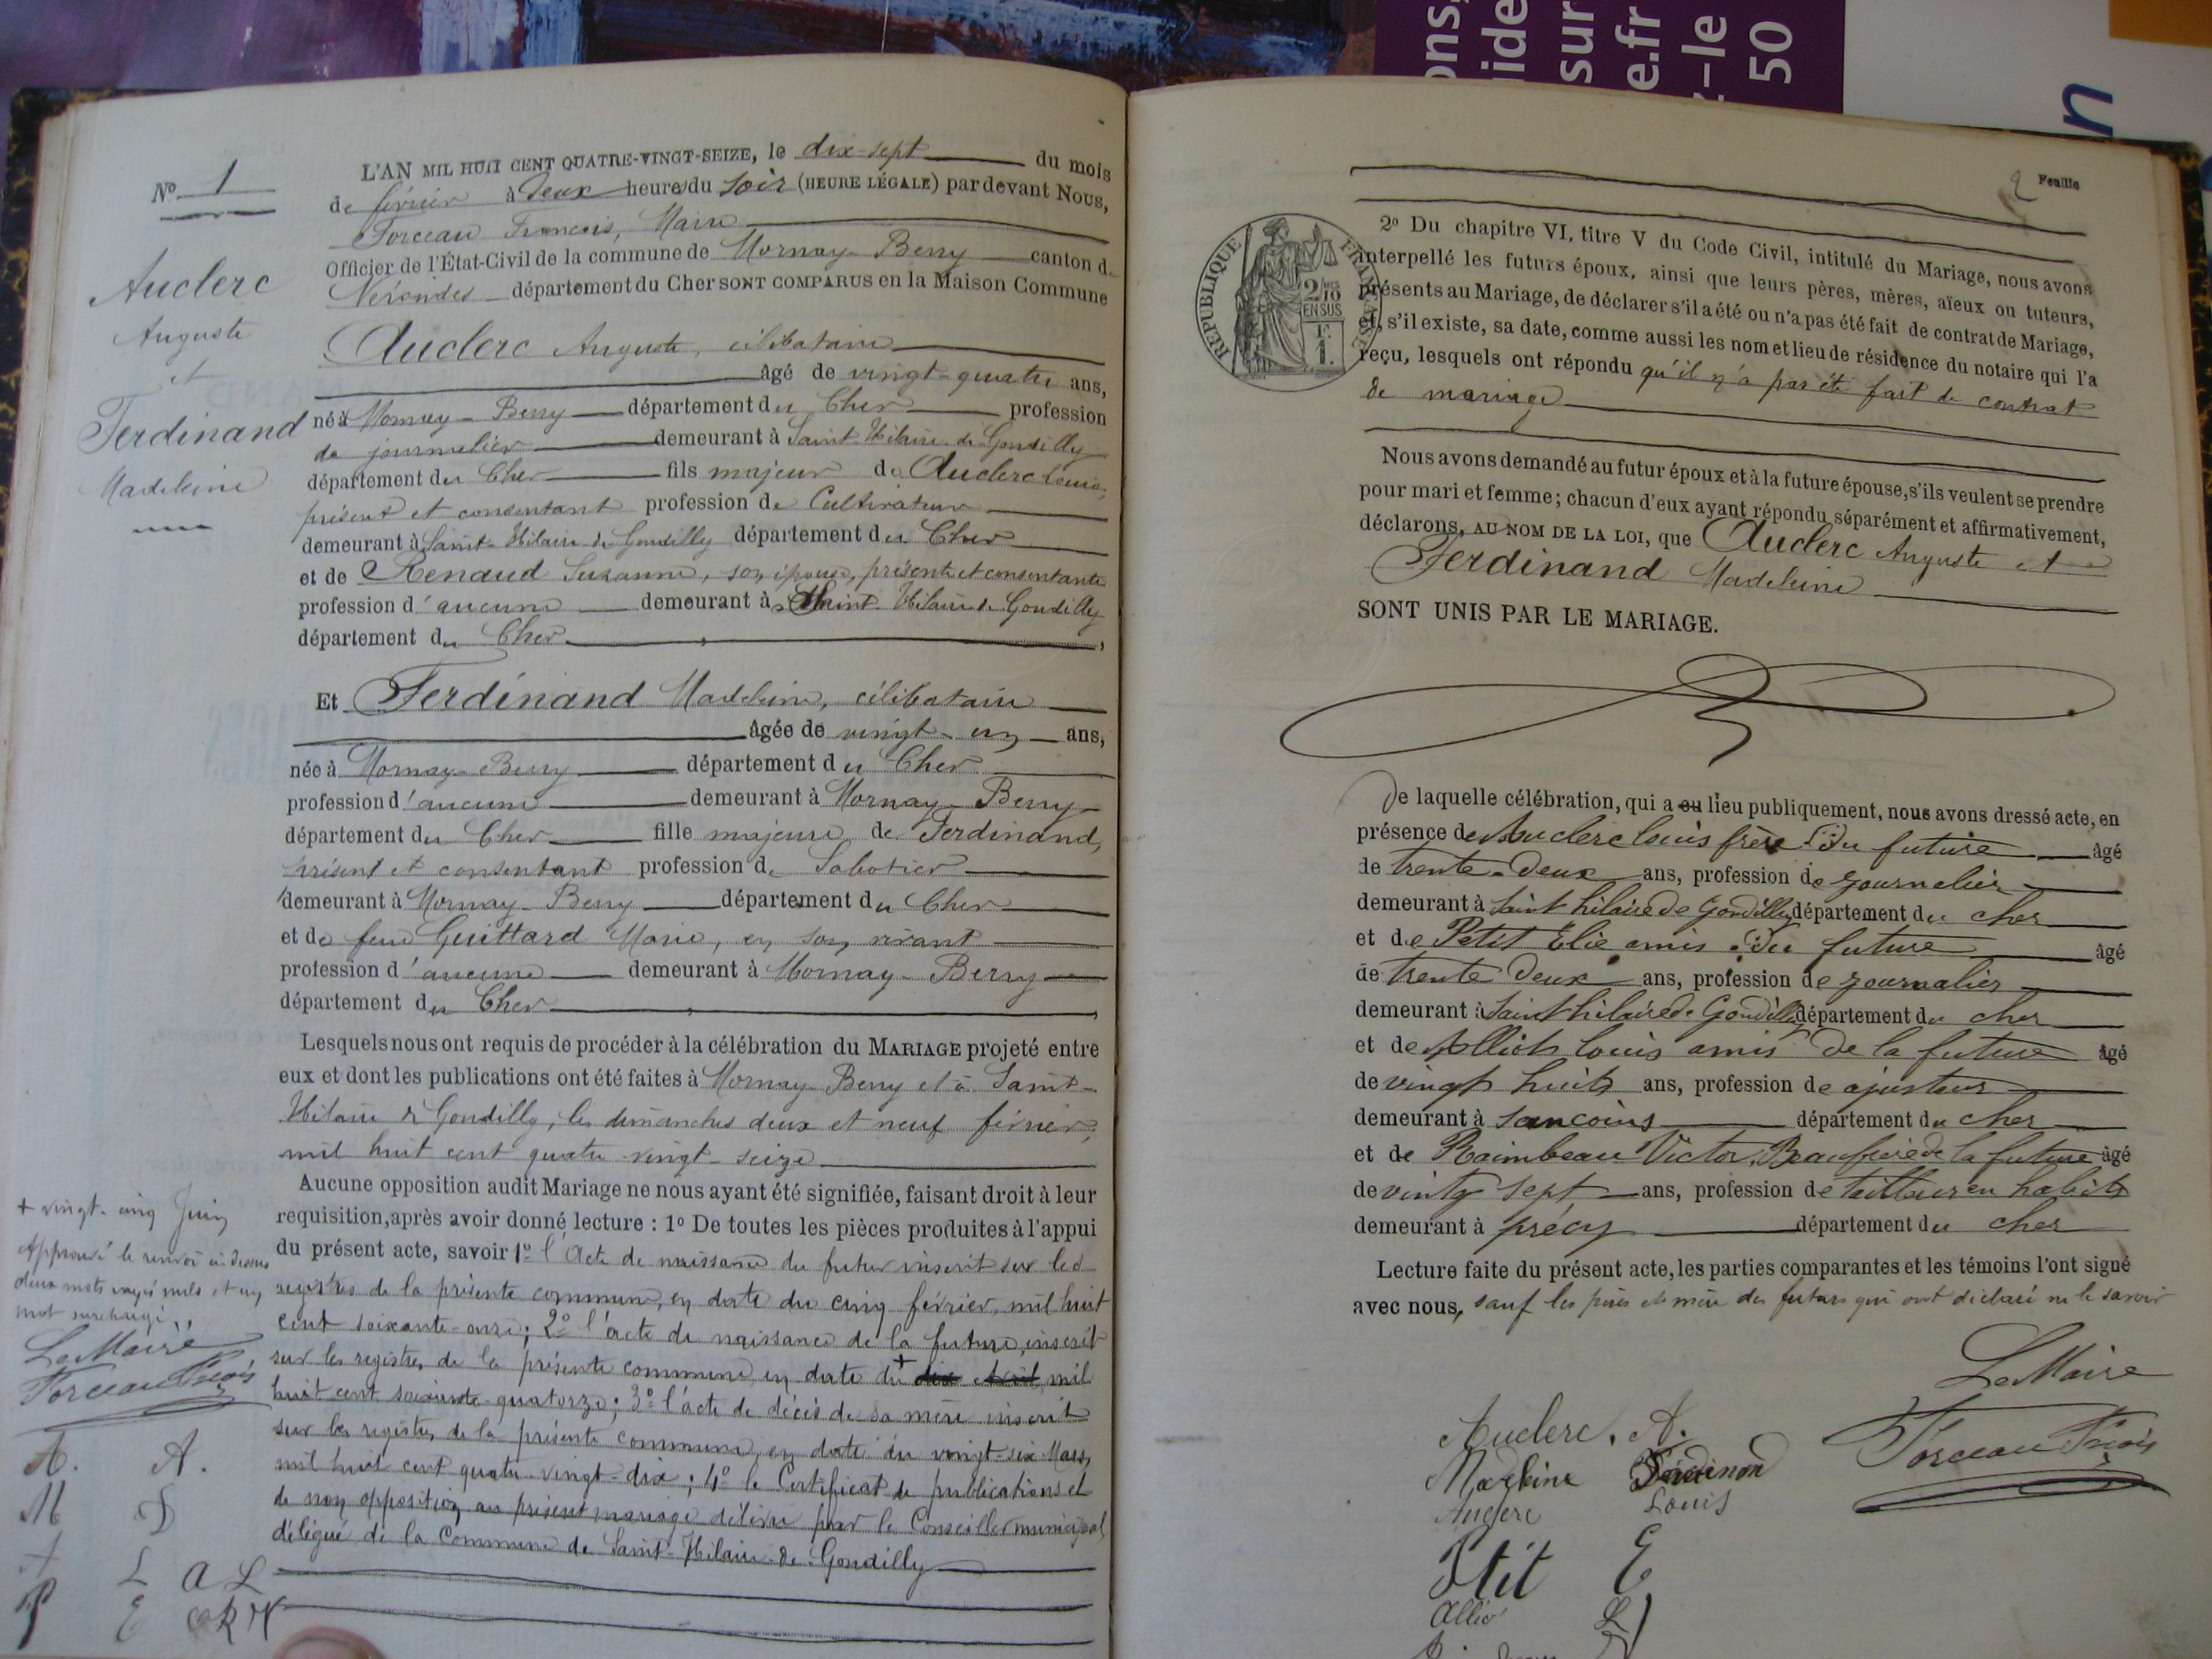 ons,
ide
sur
e.fr
-le
50
n
Nº 1
Auclerc
Auguste
et
Ferdinand
Madeleine
L'AN MIL HUIT CENT QUATRE-VINGT-SEIZE, le dix-sept du mois
de février à deux heure du soir (HEURE LÉGALE) par devant Nous,
Forceau François, Maire
Officier de l'État-Civil de la commune de Mornay-Berry canton de
Nérondes département du Cher SONT COMPARUS en la Maison Commune
Auclerc Auguste, célibataire
âgé de vingt-quatre ans,
né à Mornay-Berry département du Cher profession
de journalier demeurant à Saint-Hilaire-de-Gondilly
département du Cher fils majeur de Auclerc Louis,
présent et consentant profession de Cultivateur
demeurant à Saint-Hilaire-de-Gondilly département du Cher
et de Renaud Suzanne, son épouse, présente et consentante
profession d'aucune demeurant à Saint-Hilaire-de-Gondilly
département du Cher
Et Ferdinand Madeleine, célibataire
âgée de vingt-un ans,
née à Mornay-Berry département du Cher
profession d'aucune demeurant à Mornay-Berry
département du Cher fille majeure de Ferdinand,
présent et consentant profession de Sabotier
demeurant à Mornay-Berry département du Cher
et de feue Guittard Marie, en son vivant
profession d'aucune demeurant à Mornay-Berry
département du Cher
Lesquels nous ont requis de procéder à la célébration du MARIAGE projeté entre
eux et dont les publications ont été faites à Mornay-Berry et à Saint-
Hilaire de Gondilly, les dimanches deux et neuf février,
mil huit cent quatre vingt-seize
Aucune opposition audit Mariage ne nous ayant été signifiée, faisant droit à leur
requisition, après avoir donné lecture : 1º De toutes les pièces produites à l'appui
du présent acte, savoir 1º l'Acte de naissance du futur inscrit sur les
registres de la présente commune, en date du cinq février mil huit
cent soixante-onze; 2º l'acte de naissance de la future, inscrit
sur les registres de la présente commune en date du + dix Avril mil
huit cent soixante-quatorze; 3º l'acte de décès de sa mère inscrit
sur les registres de la présente commune, en date du vingt-six Mars,
mil huit cent quatre-vingt-dix; 4º le Certificat de publications et
de non opposition au présent mariage délivré par le Conseiller municipal
délégué de la Commune de Saint-Hilaire-de-Gondilly
+ vingt-cinq Juin
Approuvé le renvoi ci-dessus
deux mots rayés nuls et un
mot surchargé,,
Le Maire
Forceau Fçois
A. A.
M F
A L A L
P E R V
2 Feuille
REPUBLIQUE FRANÇAISE
2/10
EN SUS
F.
1.
2º Du chapitre VI, titre V du Code Civil, intitulé du Mariage, nous avons
interpellé les futurs époux, ainsi que leurs pères, mères, aïeux ou tuteurs,
présents au Mariage, de déclarer s'il a été ou n'a pas été fait de contrat de Mariage,
et, s'il existe, sa date, comme aussi les nom et lieu de résidence du notaire qui l'a
reçu, lesquels ont répondu qu'il n'a pas été fait de contrat
de mariage
Nous avons demandé au futur époux et à la future épouse, s'ils veulent se prendre
pour mari et femme; chacun d'eux ayant répondu séparément et affirmativement,
déclarons, AU NOM DE LA LOI, que Auclerc Auguste et
Ferdinand Madeleine
SONT UNIS PAR LE MARIAGE.
De laquelle célébration, qui a eu lieu publiquement, nous avons dressé acte, en
présence de Auclerc Louis frère Du future âgé
de trente-Deux ans, profession de journalier
demeurant à Saint hilaire de Gondilly département du cher
et de Petit Elie amis Du future âgé
de trente Deux ans, profession de journalier
demeurant à Saint hilaire de Gondilly département du cher
et de Alliot louis amis De la future âgé
de vingt huits ans, profession de ajusteur
demeurant à sancoins département du cher
et de Raimbeau Victor Beaufrere de la future âgé
de vintg sept ans, profession de tailleur en habits
demeurant à précy département du cher
Lecture faite du présent acte, les parties comparantes et les témoins l'ont signé
avec nous, sauf les pères et mère des futurs qui ont déclaré ne le savoir
Le Maire
Auclerc. A.
Forceau Fçois
Madleine Ferdinand
Auclerc Louis
Petit E
Alliot L